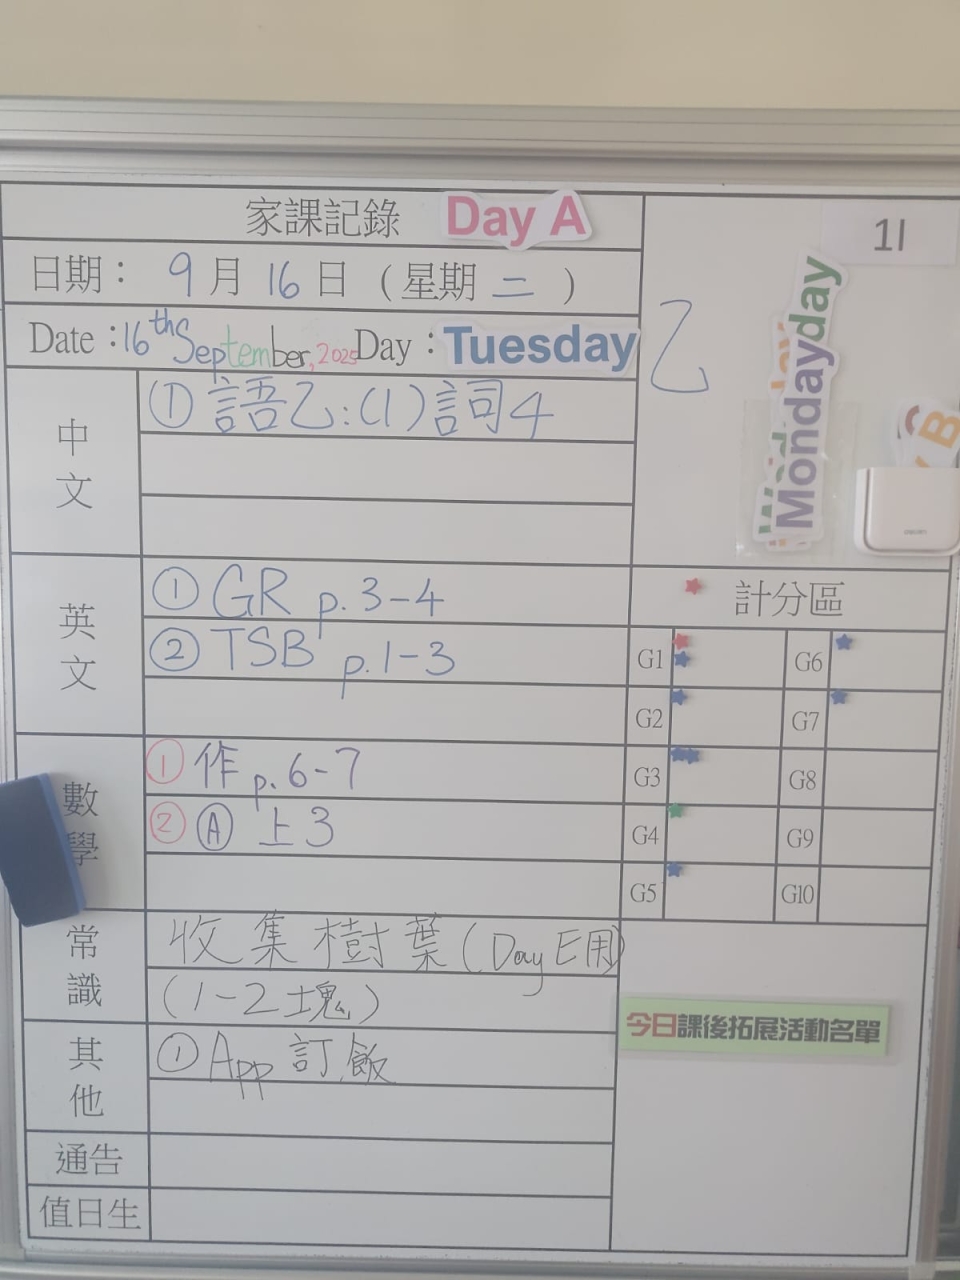 家課記錄 Day A
1I
日期： 9 月 16 日 （星期 二 ）
Date：16th September, 2025 Day：Tuesday
乙
Monday
day
B
中文
① 語乙:(1)詞4
英文
① GR p.3-4
② TSB p.1-3
計分區
G1 G6
G2 G7
G3 G8
G4 G9
G5 G10
數學
① 作 p.6-7
② Ⓐ 上3
常識
收集樹葉(Day E用)
(1-2塊)
今日課後拓展活動名單
其他
① App 訂飯
通告
值日生